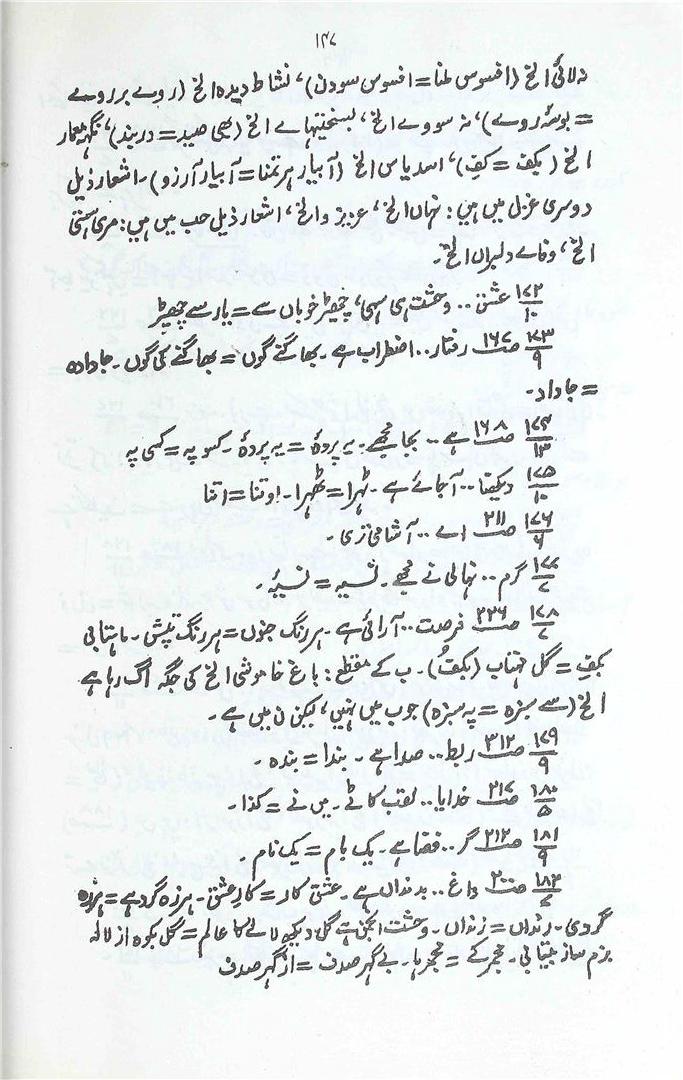 ۱۴۷
نہ لائی الخ (افسوس طنا = افسوس سودن)، نشاط دیدہ الخ (روے بر روے
= بوسۂ روے)، نہ سووے الخ، بسختیہاے الخ (بھی صید = دربند)، نگہ معمار
الخ (بکف = کفِ)، اسد یاس الخ (آبیارِ ہر تمنا = آبیار آرزو)۔ اشعار ذیل
دوسری غزل میں ہیں: نہاں الخ، عزیزو الخ، اشعار ذیل حب میں ہیں: مری ہستی
الخ، وفاے دلبراں الخ۔
۱۷۲/۱۰ عشق .. وحشت ہی سہی، چھیڑ خوباں سے = یار سے چھیڑ
۱۷۳/۹ صت ۱۶۷ رفتار .. اضطراب ہے۔ بھاگنے گوں = بھاگنے کی گوں۔ جاداده
= جاداد۔
۱۷۴/۱۳ صت ۱۶۸ ہے .. بجا مجھے۔ یہ پردہ = یہ پردۂ۔ کسو پہ = کسی پہ
۱۷۵/۱۰ دیکھنا .. آ جائے ہے۔ ٹہرا = ٹھہرا۔ اوتنا = اتنا
۱۷۶/۶ صت ۲۱۱ اے .. آشامی تری۔
۱۷۷/۷ گرم .. نہالی نے مجھے۔ نسیہ = نسیۂ۔
۱۷۸/۷ صت ۲۳۶ فرصت .. آرائی ہے۔ ہر رنگ جنوں = ہر رنگ تپش۔ ماہتابی
بکف = گل مہتاب (بکف)۔ ب کے مقطع: باغ خاموشی الخ کی جگہ اگ رہا ہے
الخ (سے سبزہ = پہ سبزہ) جو ب میں نہیں، لیکن ن میں ہے۔
۱۷۹/۹ صت ۳۱۲ ربط .. صدا ہے۔ بندا = بندہ۔
۱۸۰/۵ صت ۲۱۷ خدایا .. لقب کاٹے۔ میں نے = کذا۔
۱۸۱/۹ صت ۲۱۲ گر .. فضا ہے۔ یک بام = یک نام۔
۱۸۲/۷ صت ۲۰۰ داغ .. بدنداں ہے۔ عشق کار = کارِ عشق۔ ہرزہ گرد ہے = ہرزہ
گردی۔ زنداں = زنداں۔ وحشت انجمن ہے گل دیکھ لالے کا عالم = گل بکوہ از لالہ
بزم ساز بیتابی۔ خجر کے = خجر ہا۔ بے گہر صدف = از گہر صدف